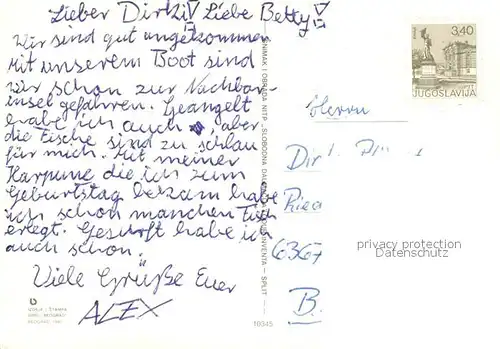 Lieber Dirk! Liebe Betty!
Wir sind gut angekommen
Mit unserem Boot sind
wir schon zur Nachbar-
insel gefahren. Geangelt
habe ich auch, aber
die Fische sind zu schlau
für mich. Mit meiner
Harpune die ich zum
Geburtstag bekam habe
ich schon manchen Fisch
erlegt. Gesurft habe ich
auch schon.
Viele Grüße Euer
ALEX
3,40
JUGOSLAVIJA
Herrn
6367
B.
privacy protection
Datenschutz
10345
SPLIT